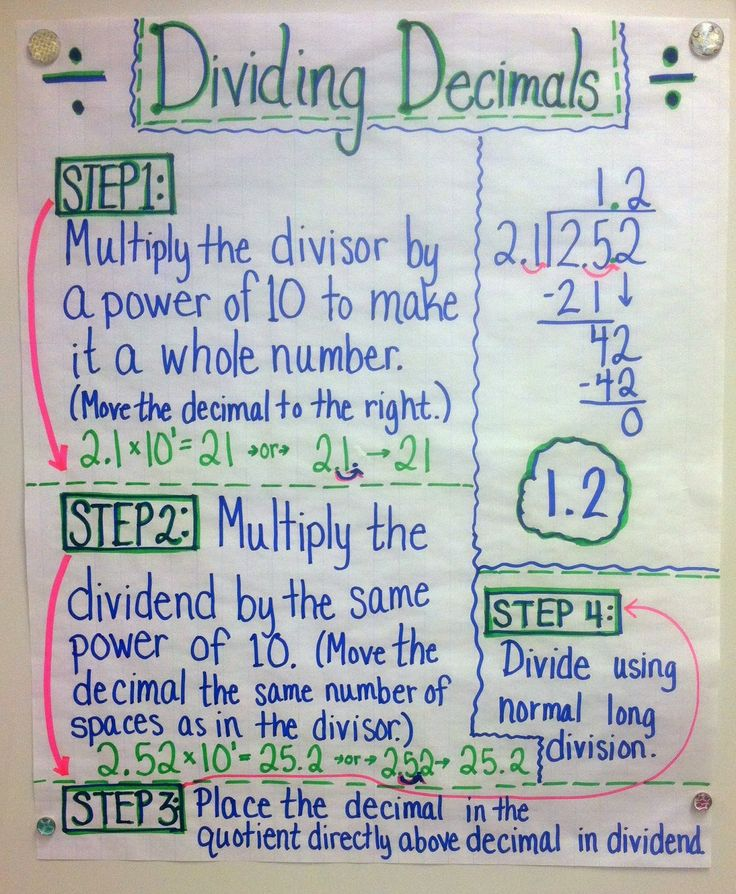 ÷ Dividing Decimals ÷
STEP 1:
Multiply the divisor by
a power of 10 to make
it a whole number.
(Move the decimal to the right.)
2.1 × 10¹ = 21 → or → 2.1. → 21
STEP 2: Multiply the
dividend by the same
power of 10. (Move the
decimal the same number of
spaces as in the divisor.)
2.52 × 10¹ = 25.2 → or → 2.52 → 25.2
STEP 3: Place the decimal in the
quotient directly above decimal in dividend
1.2
2.1 2.5.2
-21↓
42
-42
0
1.2
STEP 4:
Divide using
normal long
division.